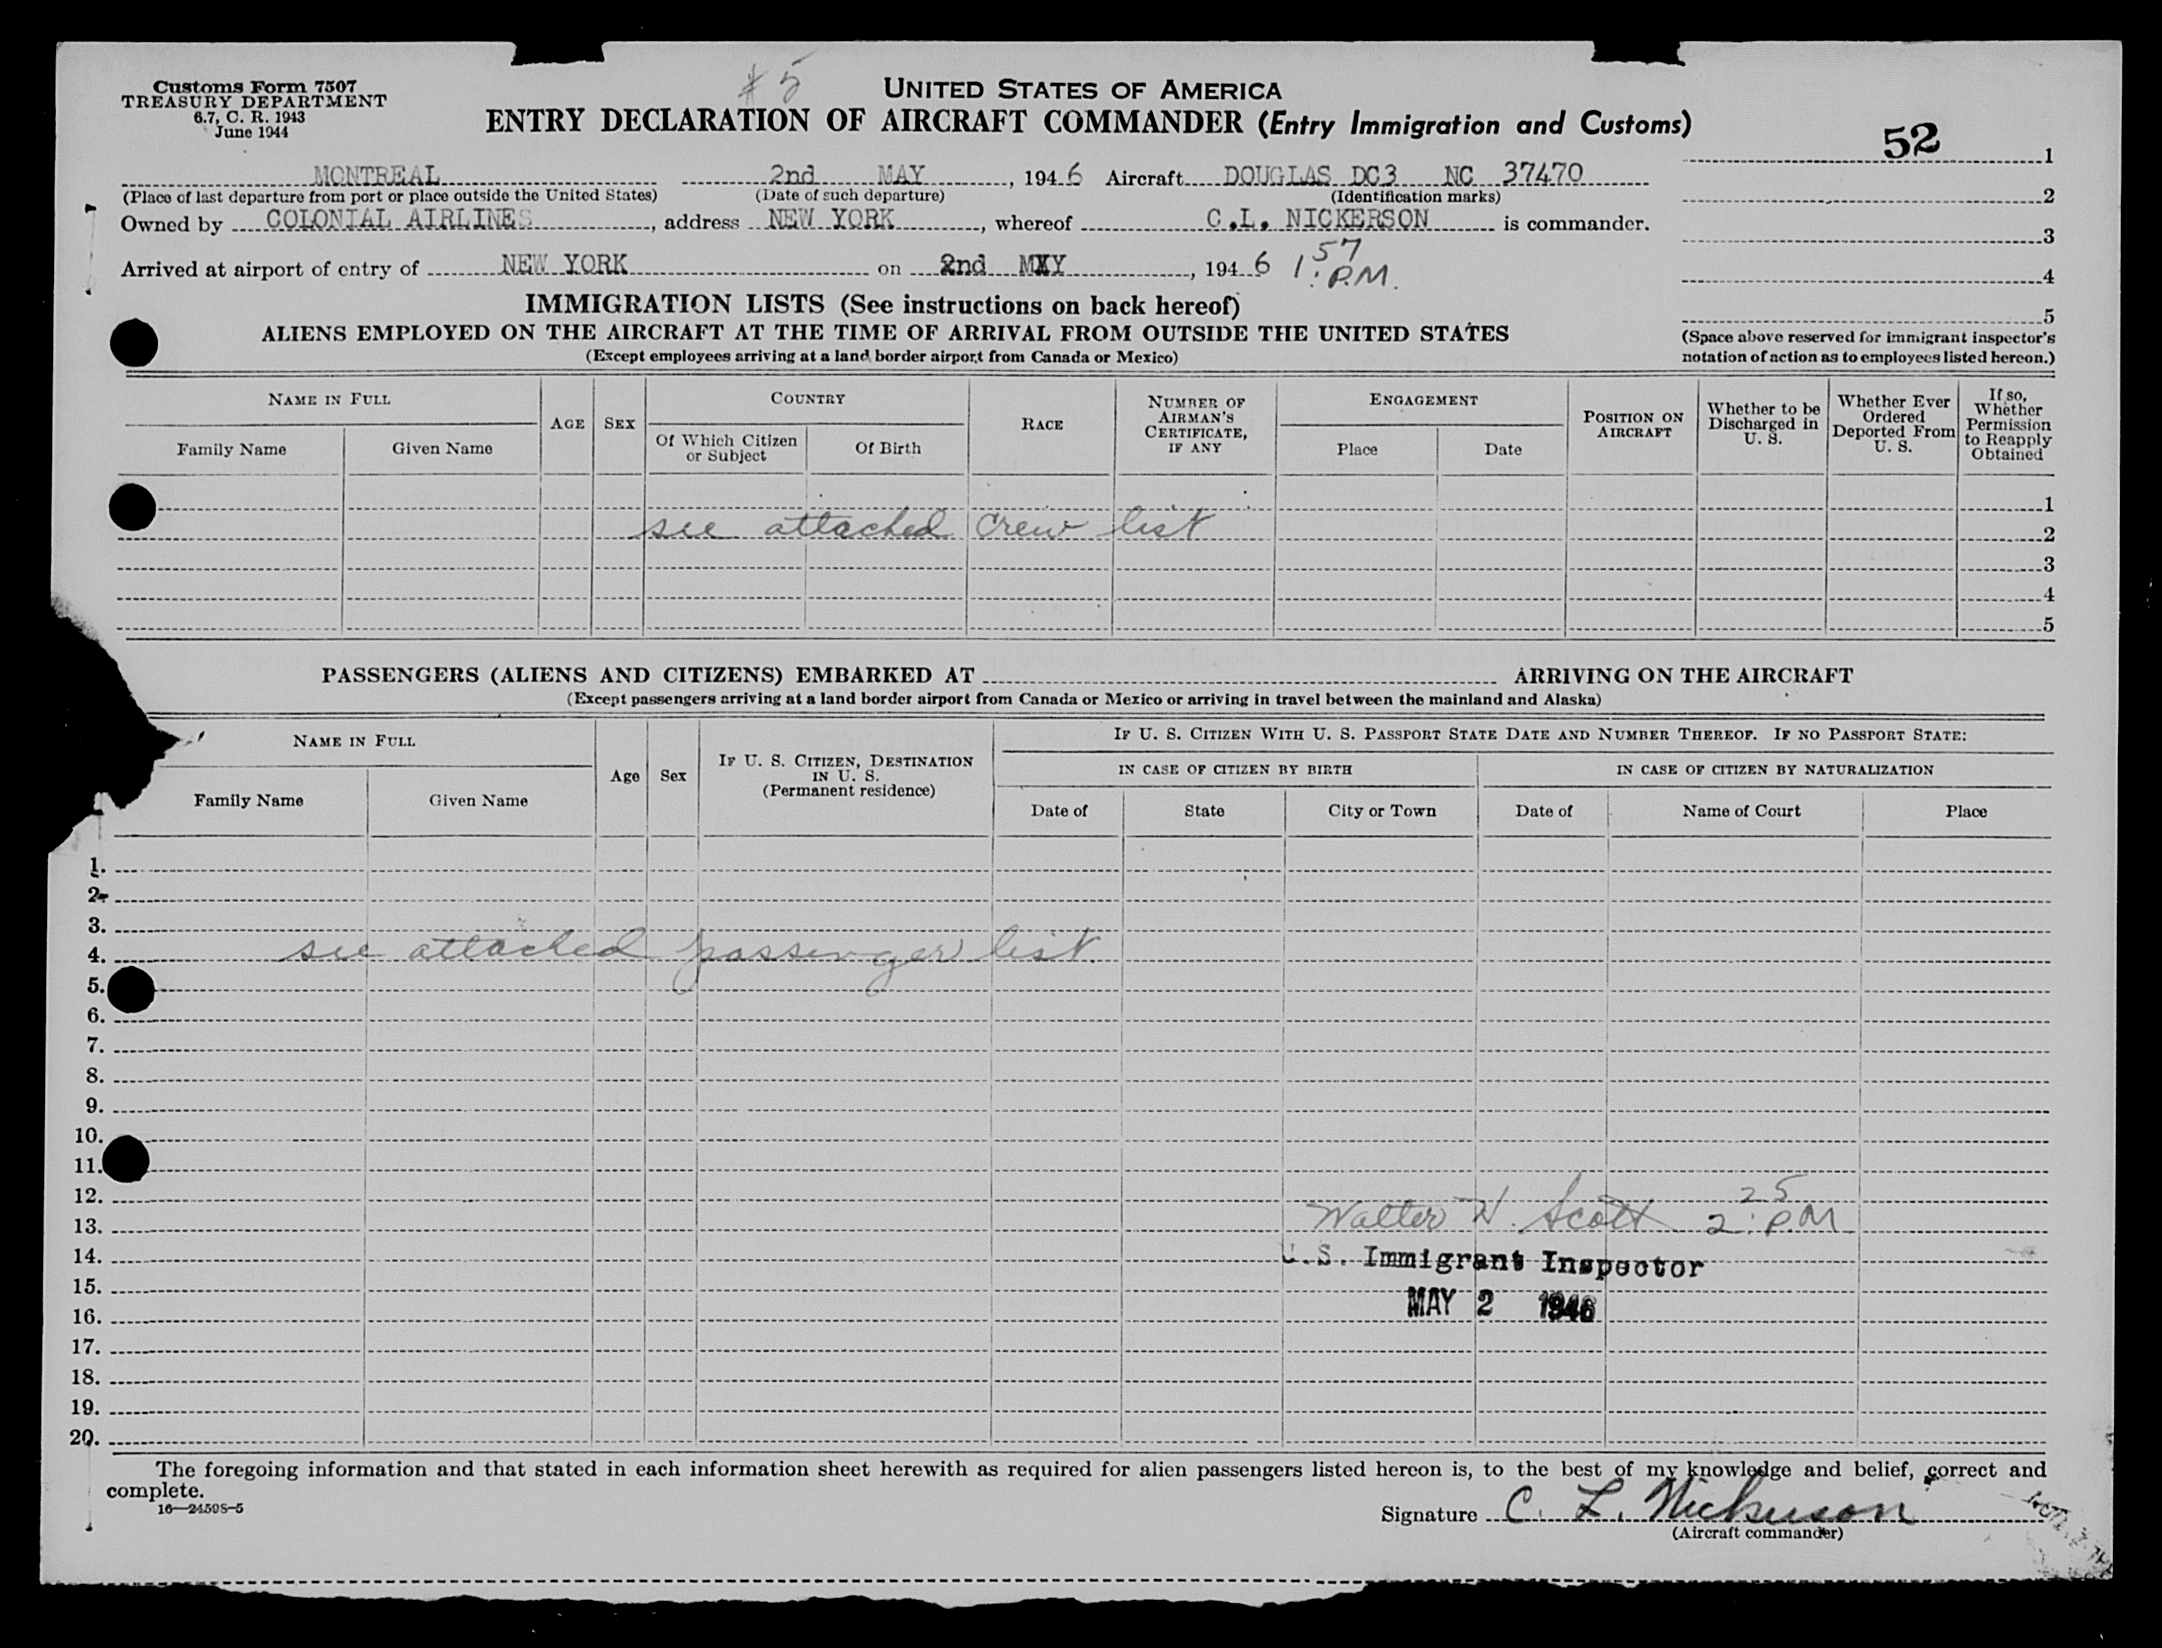 # 5
Customs Form 7507
TREASURY DEPARTMENT
6.7, C. R. 1943
June 1944
UNITED STATES OF AMERICA
ENTRY DECLARATION OF AIRCRAFT COMMANDER (Entry Immigration and Customs)
52
MONTREAL 2nd MAY, 1946 Aircraft DOUGLAS DC3 NC 37470
(Place of last departure from port or place outside the United States) (Date of such departure) (Identification marks)
Owned by COLONIAL AIRLINES, address NEW YORK, whereof C.L. NICKERSON is commander.
Arrived at airport of entry of NEW YORK on 2nd MAY, 1946 1:57 P.M.
1
2
3
4
5
(Space above reserved for immigrant inspector's
notation of action as to employees listed hereon.)
IMMIGRATION LISTS (See instructions on back hereof)
ALIENS EMPLOYED ON THE AIRCRAFT AT THE TIME OF ARRIVAL FROM OUTSIDE THE UNITED STATES
(Except employees arriving at a land border airport from Canada or Mexico)
NAME IN FULL
Family Name Given Name
AGE
SEX
COUNTRY
Of Which Citizen or Subject
Of Birth
RACE
NUMBER OF AIRMAN'S CERTIFICATE, IF ANY
ENGAGEMENT
Place Date
POSITION ON AIRCRAFT
Whether to be Discharged in U. S.
Whether Ever Ordered Deported From U. S.
If so, Whether Permission to Reapply Obtained
1
see attached crew list 2
3
4
5
PASSENGERS (ALIENS AND CITIZENS) EMBARKED AT ARRIVING ON THE AIRCRAFT
(Except passengers arriving at a land border airport from Canada or Mexico or arriving in travel between the mainland and Alaska)
NAME IN FULL
Family Name Given Name
Age
Sex
IF U. S. CITIZEN, DESTINATION IN U. S.
(Permanent residence)
IF U. S. CITIZEN WITH U. S. PASSPORT STATE DATE AND NUMBER THEREOF. IF NO PASSPORT STATE:
IN CASE OF CITIZEN BY BIRTH
IN CASE OF CITIZEN BY NATURALIZATION
Date of State City or Town Date of Name of Court Place
1.
2.
3.
4. see attached passenger list.
5.
6.
7.
8.
9.
10.
11.
12.
13. Walter W. Scott 2:25 PM
14. U.S. Immigrant Inspector
15.
16. MAY 2 1946
17.
18.
19.
20.
The foregoing information and that stated in each information sheet herewith as required for alien passengers listed hereon is, to the best of my knowledge and belief, correct and
complete.
16—24598-5
Signature C. L. Nickerson
(Aircraft commander)